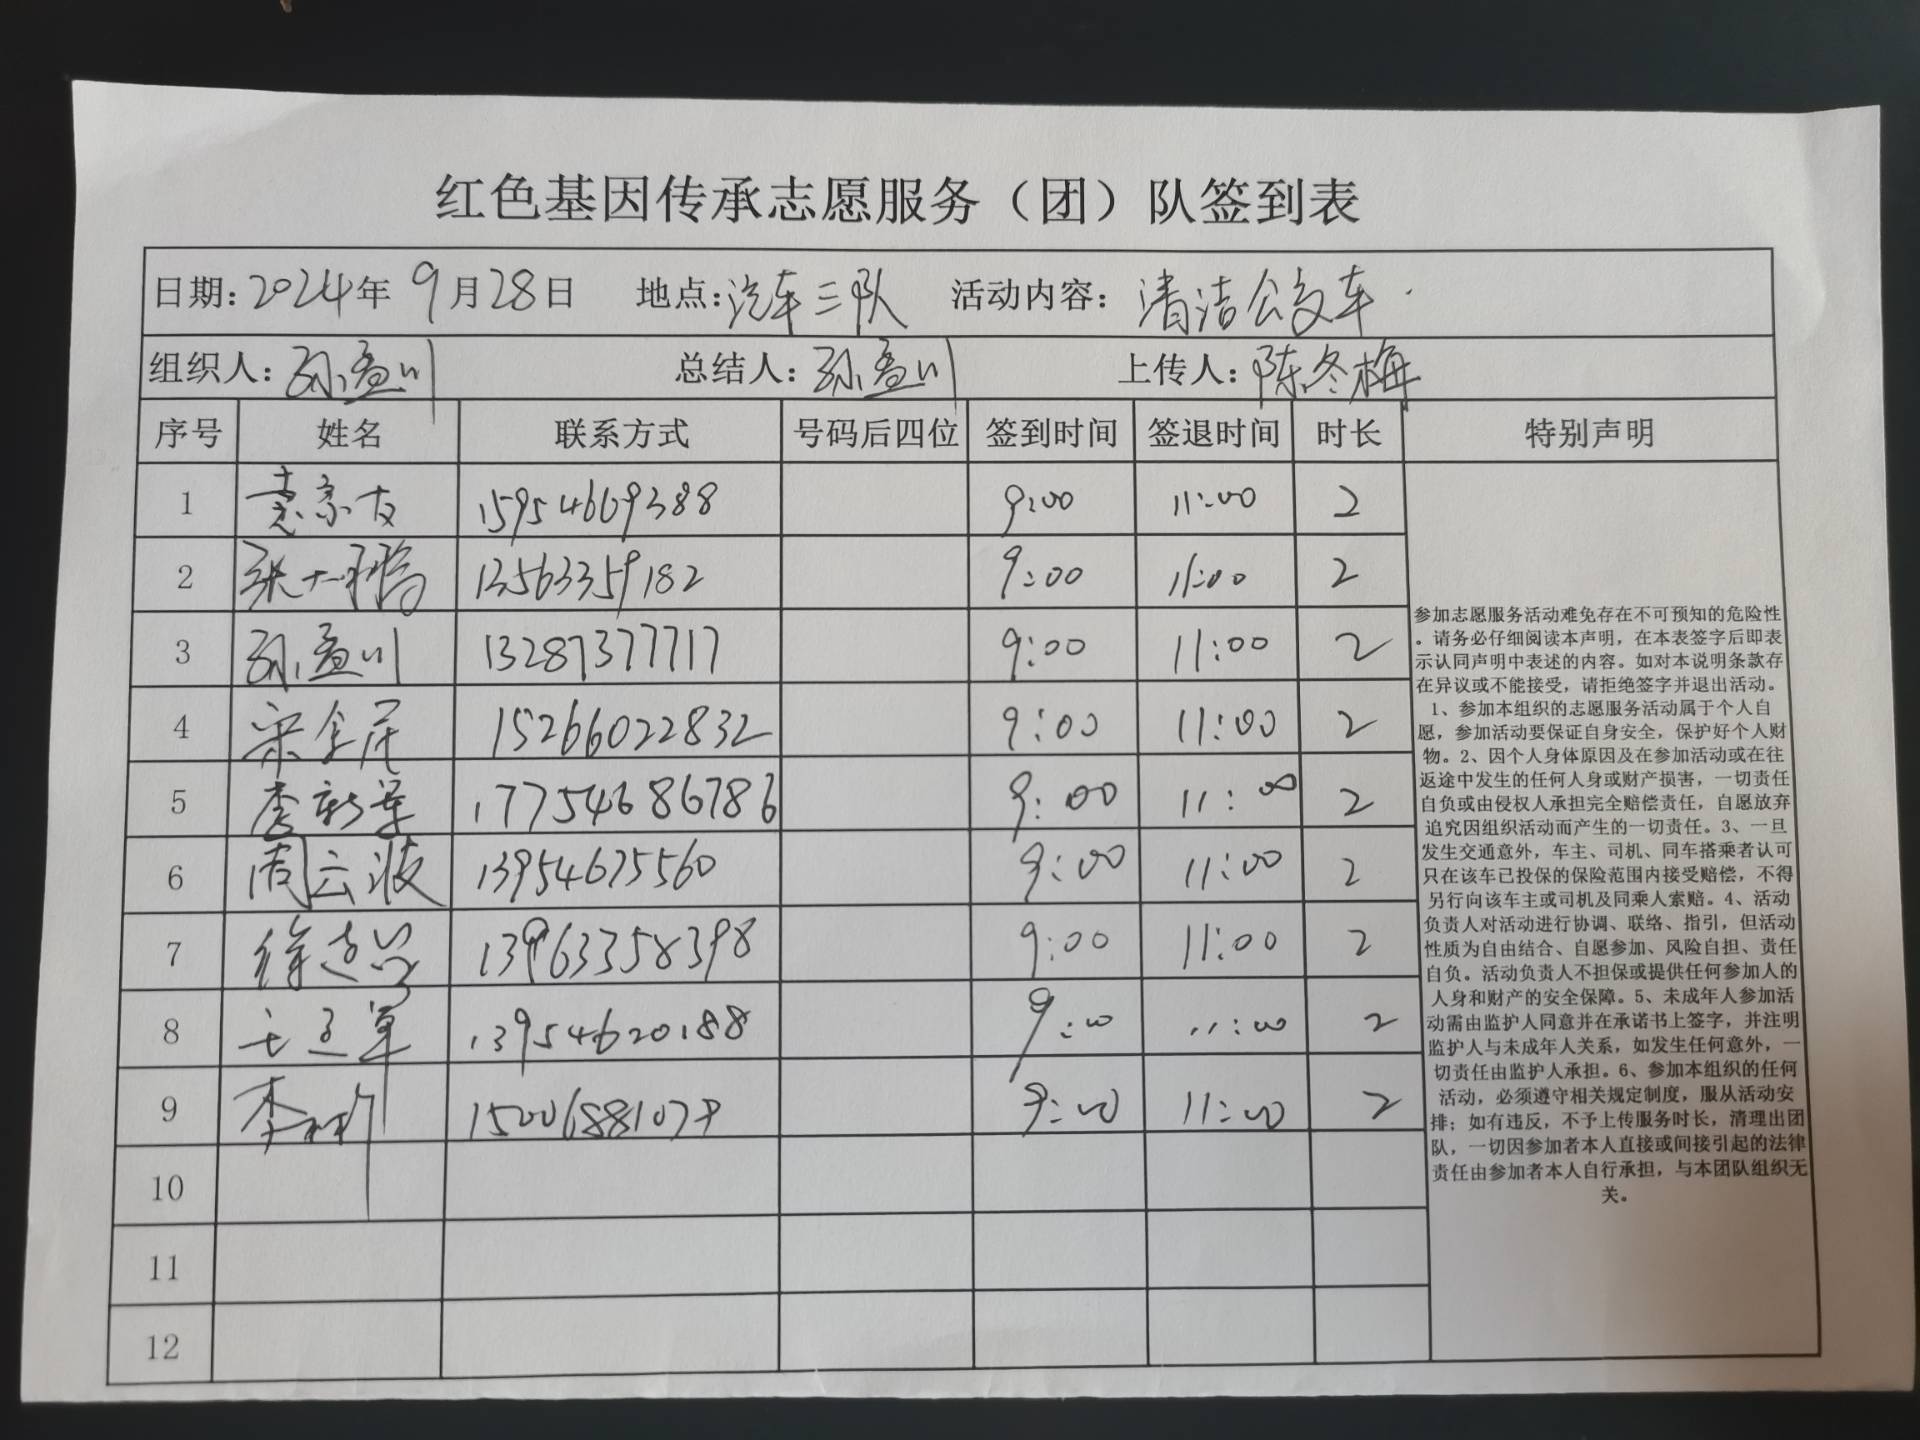 红色基因传承志愿服务（团）队签到表
日期：2024年 9月28日 地点：汽车三队 活动内容：清洁公交车.
组织人：孙盈川 总结人：孙盈川 上传人：陈冬梅
序号 姓名 联系方式 号码后四位 签到时间 签退时间 时长 特别声明
1 袁宗友 15954669388 9:00 11:00 2
2 张 鹏 13563359182 9:00 11:00 2
3 孙盈川 13287377717 9:00 11:00 2
4 宋 15266022832 9:00 11:00 2
5 李新军 17754686786 9:00 11:00 2
6 周云波 13954675560 9:00 11:00 2
7 徐志 13963358398 9:00 11:00 2
8 王 军 13954620188 9:00 11:00 2
9 李 9:00 11:00 2
10
11
12
参加志愿服务活动难免存在不可预知的危险性
。请务必仔细阅读本声明，在本表签字后即表
示认同声明中表述的内容。如对本说明条款存
在异议或不能接受，请拒绝签字并退出活动。
1、参加本组织的志愿服务活动属于个人自
愿，参加活动要保证自身安全，保护好个人财
物。2、因个人身体原因及在参加活动或在往
返途中发生的任何人身或财产损害，一切责任
自负或由侵权人承担完全赔偿责任，自愿放弃
追究因组织活动而产生的一切责任。3、一旦
发生交通意外，车主、司机、同车搭乘者认可
只在该车已投保的保险范围内接受赔偿，不得
另行向该车主或司机及同乘人索赔。4、活动
负责人对活动进行协调、联络、指引，但活动
性质为自由结合、自愿参加、风险自担、责任
自负。活动负责人不担保或提供任何参加人的
人身和财产的安全保障。5、未成年人参加活
动需由监护人同意并在承诺书上签字，并注明
监护人与未成年人关系，如发生任何意外，一
切责任由监护人承担。6、参加本组织的任何
活动，必须遵守相关规定制度，服从活动安
排；如有违反，不予上传服务时长，清理出团
队，一切因参加者本人直接或间接引起的法律
责任由参加者本人自行承担，与本团队组织无
关。